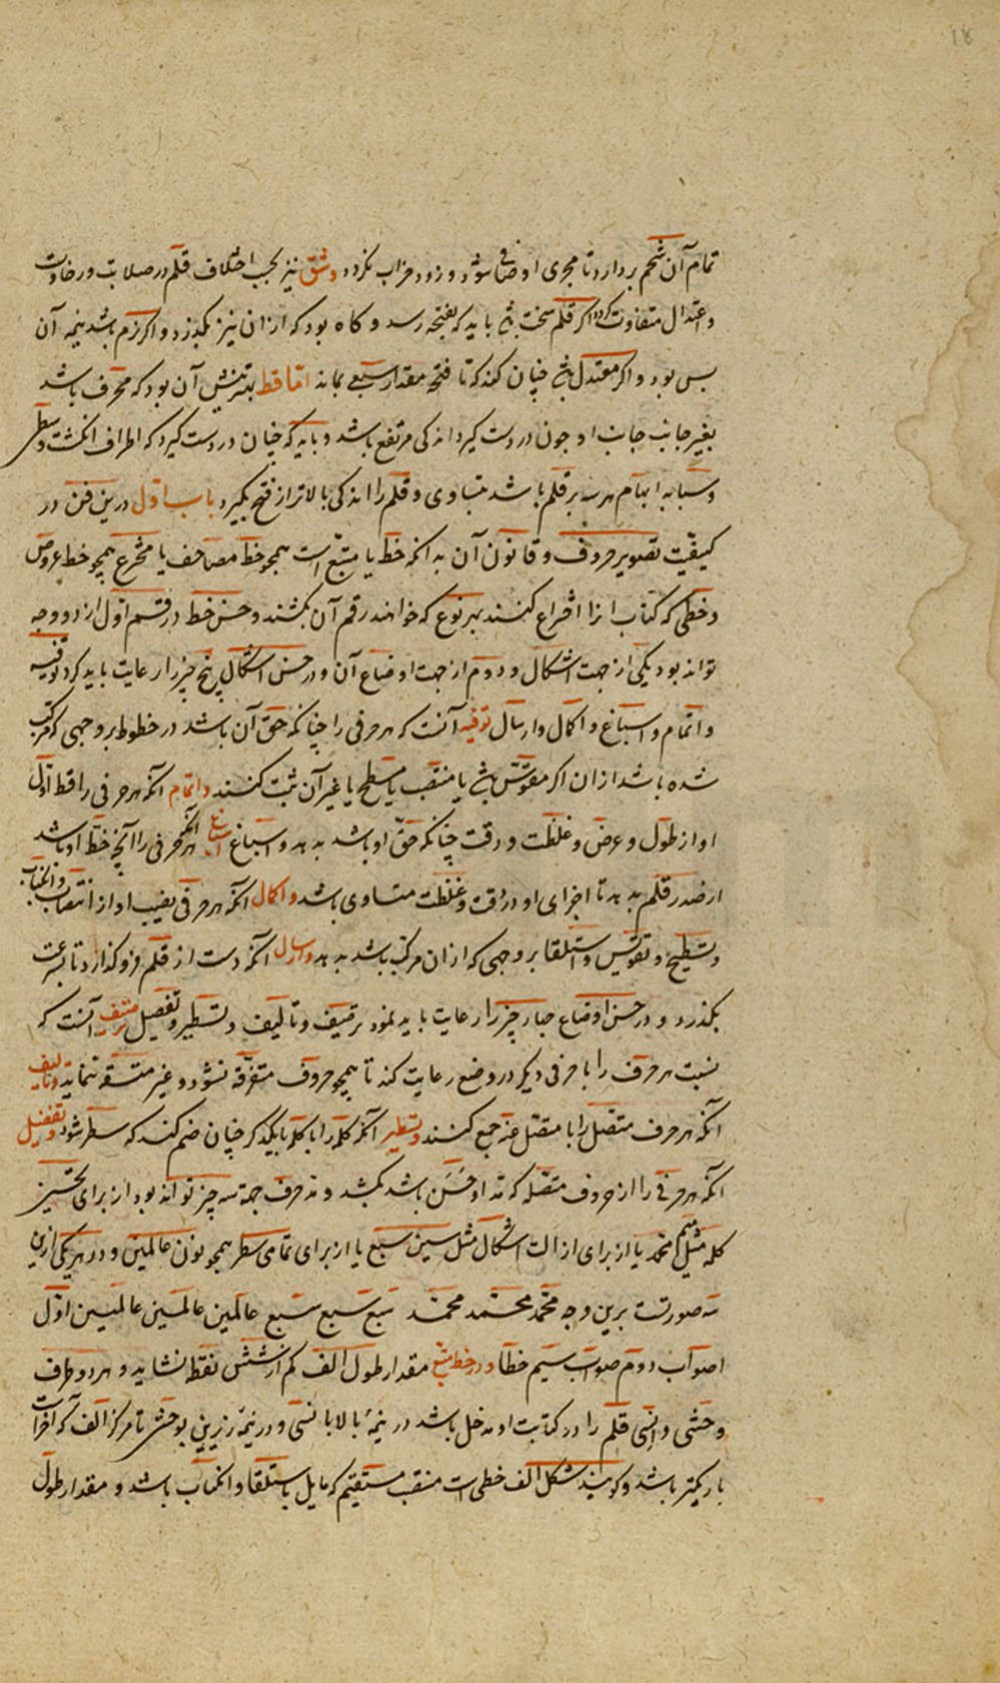 تمام آن شحم بردارد تا مجری او صافی شود و زود خراب نکردد و شق نیز بحسب اختلاف قلم در صلابت و رخاوت
و اعتدال متفاوت کردد اکر قلم سخت باشد باید که بفتحه رسد و کاه بود که ازان نیز بکذرد و اکر نرم باشد بنیمه آن
بس بود و اکر معتدل باشد چنان کند که تا فتحه مقدار سبعی بماند اما قط بهترینش آن بود که محرف باشد
بغیر جانب جانب او چون در دست کیرد اندکی مرتفع باشد و باید که چنان در دست کیرد که اطراف انکشت وسطی
و سبابه ابهام هر سه بر قلم باشد متساوی و قلم را اندکی بالاتر از فتح بکیرد باب اول درین فن در
کیفیت تصویر حروف و قانون آن بدانکه خط یا متبع است همچو خط مصاحف یا مخترع همچو خط عروض
و خطی که کتاب انرا اختراع کنند بهر نوع که خواهند رقم آن بکشند و حسن خط در قسم اول از دو وجه
تواند بود یکی از جهت اشکال و دوم از جهت اوضاع آن و در حسن اشکال پنج چیز را رعایت باید کرد توفیه
و اتمام و اسباغ و اکمال و ارسال توفیه آنست که هر حرفی را چنانکه حق آن باشد در خطوط بر وجهی که مرکب
شده باشد ازان اکر مقوس باشد یا منتصب یا مسطح یا غیر آن ثبت کنند و اتمام آنکه هر حرفی را قط اول
او از طول و عرض و غلظت و رقت چنانکه حق او باشد بدهد و اسباغ اسباغ آنکه هر حرفی را آنچه خط او باشد
از صدر قلم بدهد تا اجزای او در دقت و غلظت متساوی باشد و اکمال آنکه هر حرفی نصیب او از انتصاب و انکباب
و تسطیح و تقویس و استلقا بر وجهی که ازان مرکب باشد بدهد و ارسال آنکه دست از قلم فرو کذارد تا بسرعت
بکذرد و در حسن اوضاع چهار چیز را رعایت باید نمود ترصیف و تالیف و تسطیر و تفصیل ترصیف آنست که
نسبت هر حرف را با حرفی دیکر در وضع رعایت کند تا همچو حروف متفرقه نشود و غیر متسقه ننماید و تالیف
آنکه هر حرف متصل را با متصل منه جمع کنند و تسطیر آنکه کلمه را با کلمه با یکدکر چنان ضم کنند که سطر شود و تفصیل
آنکه هر حرفی را از حروف متصله که مد او حسن باشد بکشد و مد حرف جهة سه چیز تواند بود از برای تحسین
کلمه مثل میم محمد یا از برای ازالت اشکال مثل سین سبع یا از برای تمامی سطر همچو نون عالمین و در هر یکی ازین
سه صورتست برین وجه محمد محمد محمد سبع سبع سبع عالمین عالمین عالمین اول
اصوآب دوم صوآب سیم خطا و در خط متبع مقدار طول الف کم از شش نقطه نشاید و هر دو طرف
وحشی و انسی قلم را در کتابت او مدخل باشد در نیمۀ بالا با نسی و در نیمۀ زیرین بوحشی تا مرکز الف که آخر آنست
باریکتر باشد و کویند شکل الف خطی است منتصب مستقیم که مایل باستلقا و انکباب باشد و مقدار طول